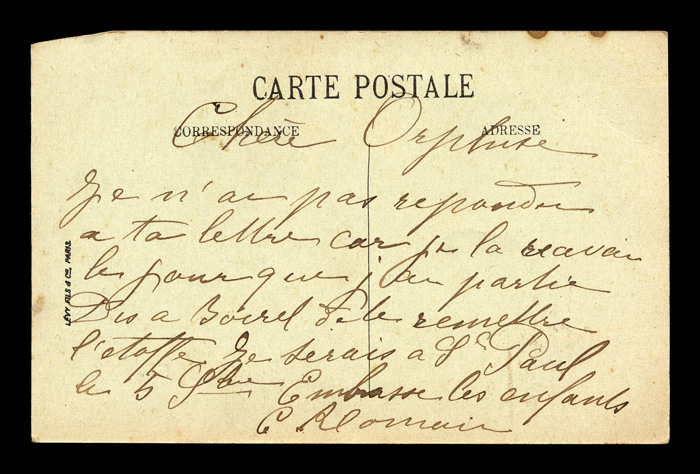 CARTE POSTALE
CORRESPONDANCE
ADRESSE
Chère Orphise
Je n'ai pas repondu
a ta lettre car je la recevai
le jour que j'ai partie
Dis a Borrel de remettre
l'etoffe Je serais a St Paul
le 5 Embrasse les enfants
E Romain
LÉVY FILS & Cie, PARIS